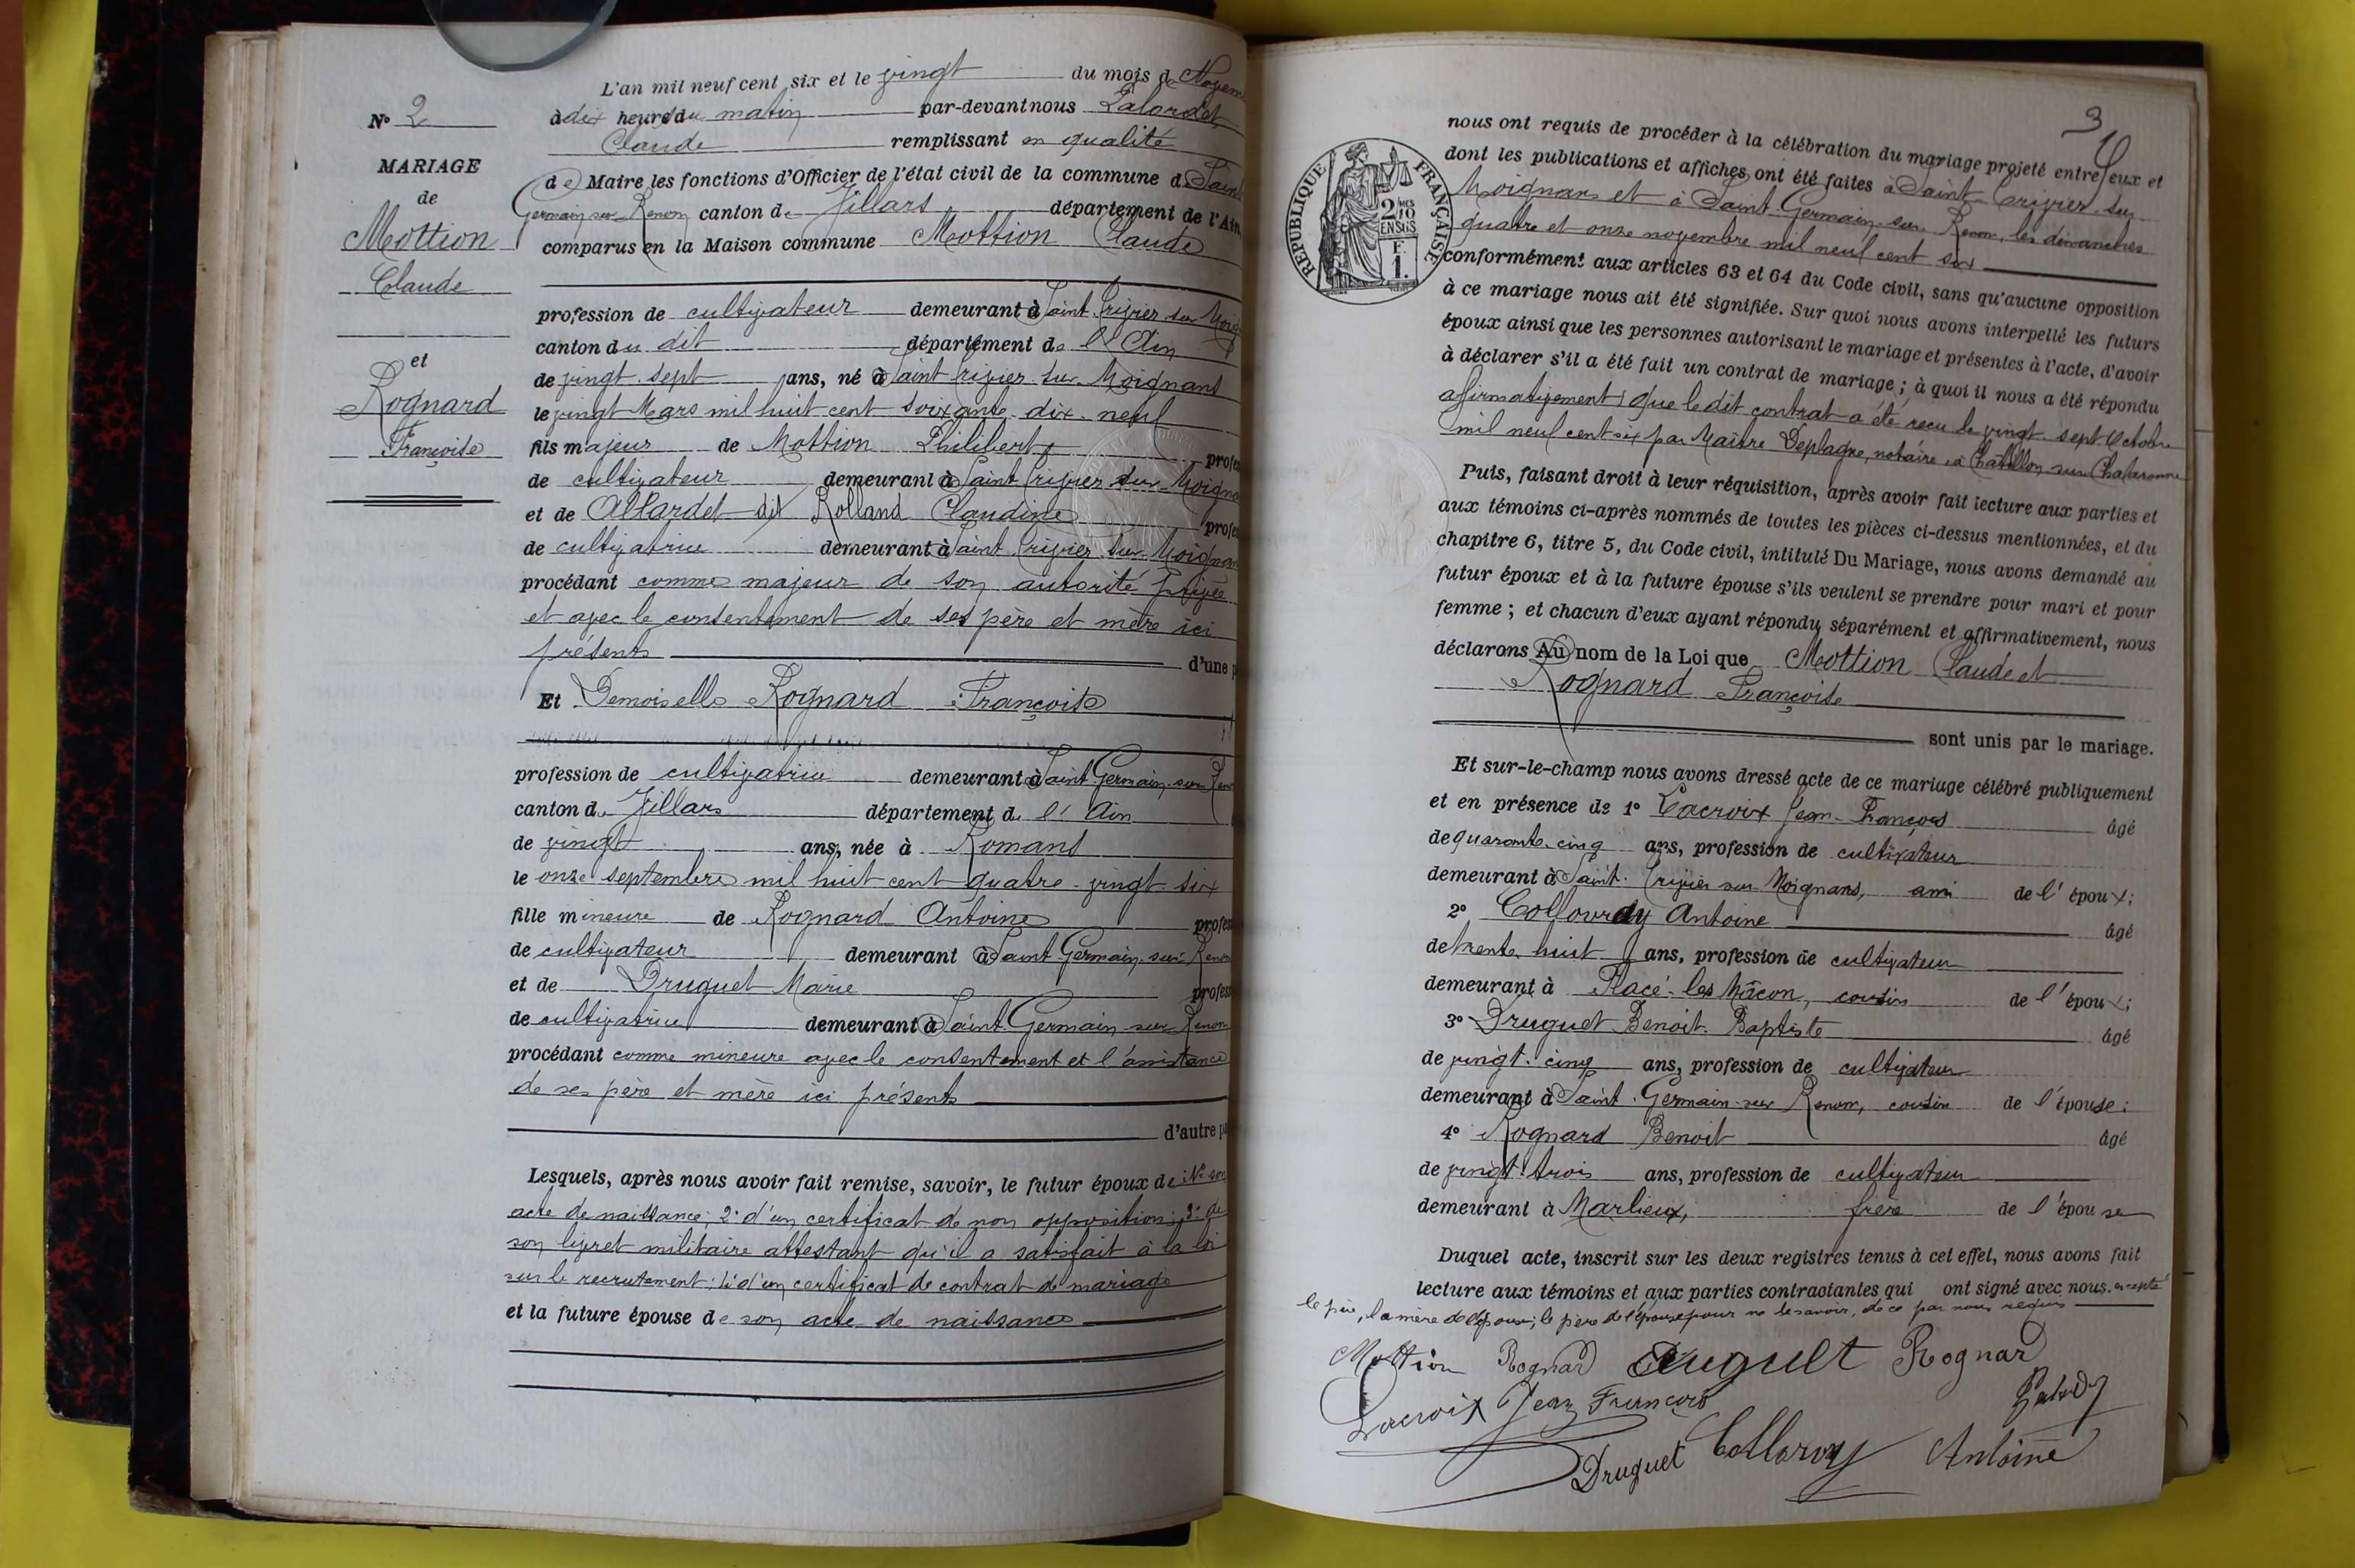 L'an mil neuf cent six et le vingt du mois de Novem
N° 2
à dix heures du matin par-devant nous
Claude remplissant en qualité
MARIAGE
de Maire les fonctions d'Officier de l'état civil de la commune de Saint
de
Germain sur Renon canton de Villars département de l'Ain,
Mottion
comparus en la Maison commune Mottion Claude
Claude
profession de cultivateur demeurant à Saint Trivier sur Moig
canton du dit département de l'Ain
et
de vingt-sept ans, né à Saint Trivier sur Moignans
Rognard
le vingt Mars mil huit cent soixante-dix-neuf
Françoise
fils majeur de Mottion Philibert profes
de cultivateur demeurant à Saint Trivier sur Moigna
et de Allardet dit Rolland Claudine profes
de cultivatrice demeurant à Saint Trivier sur Moignan
procédant comme majeur de son autorité privée
et avec le consentement de ses père et mère ici
présents d'une p
Et Demoiselle Rognard Françoise
profession de cultivatrice demeurant à Saint Germain-sur-Ren
canton de Villars département de l'Ain
de vingt ans, née à Romans
le onze septembre mil huit cent quatre-vingt-six
fille mineure de Rognard Antoine profess
de cultivateur demeurant à Saint Germain-sur-Renon
et de Druguet Marie profess
de cultivatrice demeurant à Saint Germain-sur-Renon
procédant comme mineure avec le consentement et l'assistance
de ses père et mère ici présents
d'autre pa
Lesquels, après nous avoir fait remise, savoir, le futur époux de : 1° son
acte de naissance; 2° d'un certificat de non opposition; 3° de
son livret militaire attestant qu'il a satisfait à la loi
sur le recrutement; 4° d'un certificat de contrat de mariage
et la future épouse de son acte de naissance
3
nous ont requis de procéder à la célébration du mariage projeté entre eux et
dont les publications et affiches ont été faites à Saint-Trivier-sur
Moignans et à Saint-Germain-sur-Renon, les dimanches
quatre et onze novembre mil neuf cent six
RÉPUBLIQUE FRANÇAISE
2 MES 10 EN SUS
F. 1.
conformément aux articles 63 et 64 du Code civil, sans qu'aucune opposition
à ce mariage nous ait été signifiée. Sur quoi nous avons interpellé les futurs
époux ainsi que les personnes autorisant le mariage et présentes à l'acte, d'avoir
à déclarer s'il a été fait un contrat de mariage ; à quoi il nous a été répondu
affirmativement que le dit contrat a été reçu le vingt-sept Octobre
mil neuf cent six par Maître Deplagne, notaire à Châtillon-sur-Chalaronne
Puis, faisant droit à leur réquisition, après avoir fait lecture aux parties et
aux témoins ci-après nommés de toutes les pièces ci-dessus mentionnées, et du
chapitre 6, titre 5, du Code civil, intitulé Du Mariage, nous avons demandé au
futur époux et à la future épouse s'ils veulent se prendre pour mari et pour
femme ; et chacun d'eux ayant répondu séparément et affirmativement, nous
déclarons Au nom de la Loi que Mottion Claude et
Rognard Françoise
sont unis par le mariage.
Et sur-le-champ nous avons dressé acte de ce mariage célébré publiquement
et en présence de 1° Lacroix Jean-François âgé
de quarante-cinq ans, profession de cultivateur
demeurant à Saint-Trivier sur Moignans, ami de l'époux;
2° Collovray Antoine âgé
de trente huit ans, profession de cultivateur
demeurant à Flacé-les-Mâcon, cousin de l'époux;
3° Druguet Benoit-Baptiste âgé
de vingt-cinq ans, profession de cultivateur
demeurant à Saint-Germain-sur Renon, cousin de l'épouse;
4° Rognard Benoit âgé
de vingt-trois ans, profession de cultivateur
demeurant à Marlieux, frère de l'épouse
Duquel acte, inscrit sur les deux registres tenus à cet effet, nous avons fait
lecture aux témoins et aux parties contractantes qui ont signé avec nous. excepté
le père, la mère de l'époux; le père de l'épouse pour ne le savoir, de ce par nous requis
Mottion Rognard Druguet Rognard
Lacroix Jean François
Druguet Collovray Antoine